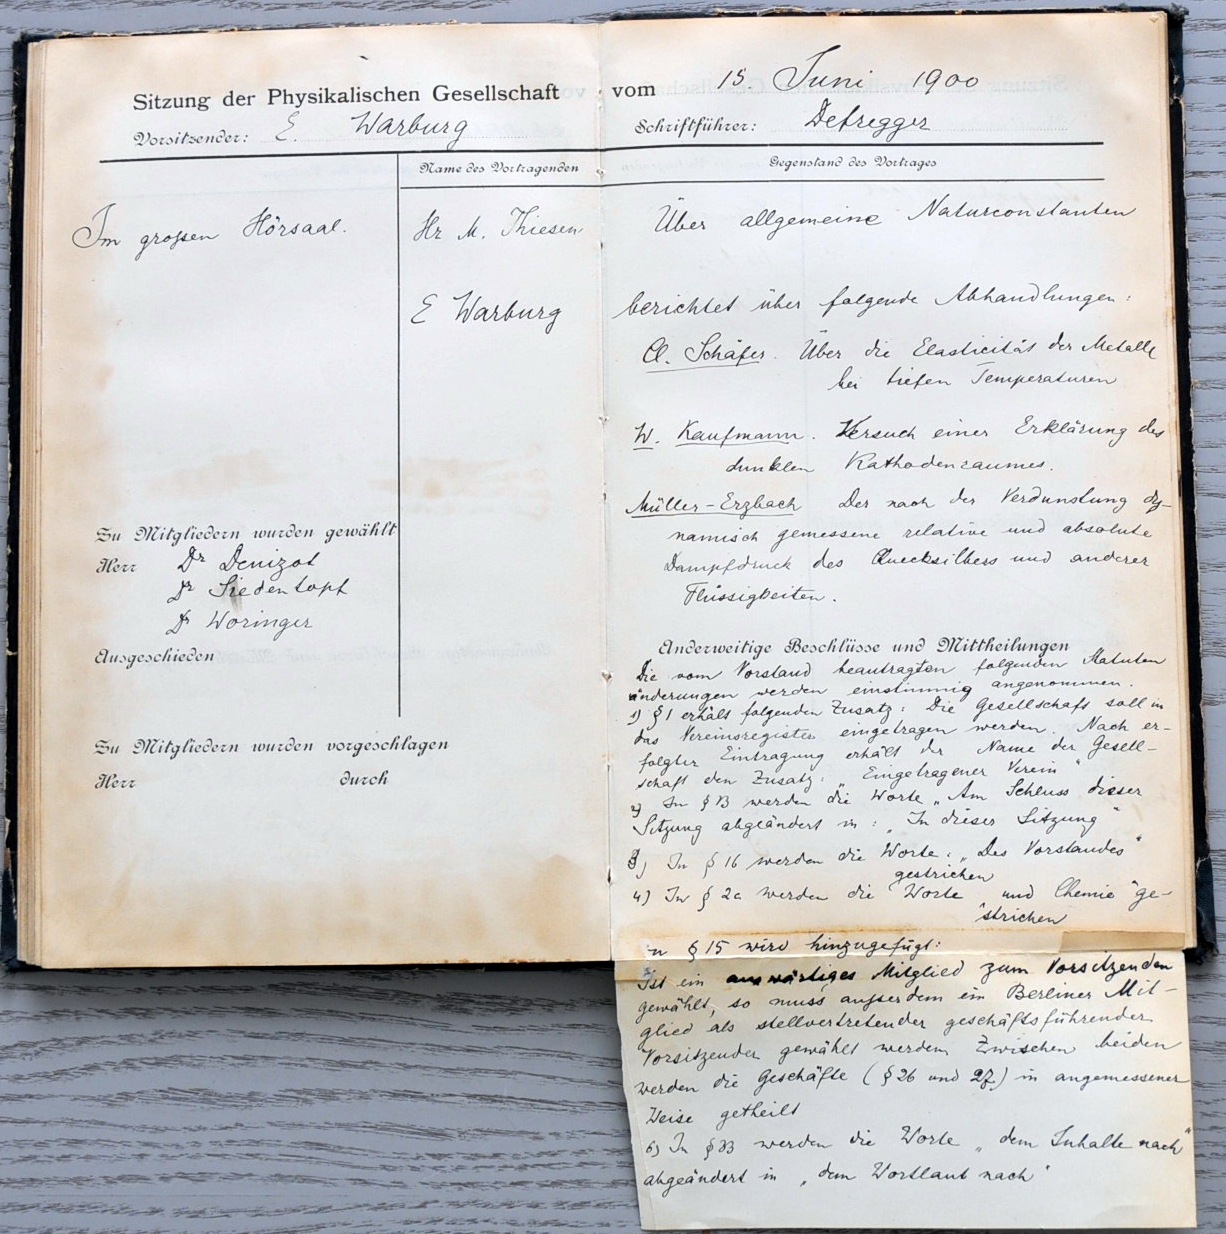 Sitzung der Physikalischen Gesellschaft vom 15. Juni 1900
Vorsitzender: E. Warburg
Schriftführer: Defregger
Name des Vortragenden
Gegenstand des Vortrages
Im großen Hörsaal.
Hr M. Thiesen
Über allgemeine Naturconstanten
E Warburg
berichtet über folgende Abhandlungen:
Cl. Schäfer. Über die Elasticität der Metalle
bei tiefen Temperaturen
W. Kaufmann. Versuch einer Erklärung des
dunklen Kathodenraumes.
Müller-Erzbach Der nach der Verdunstung dy-
namisch gemessene relative und absolute
Dampfdruck des Quecksilbers und anderer
Flüssigkeiten.
Zu Mitgliedern wurden gewählt
Herr Dr Denizot
Dr Siedentopf
Dr Woringer
Ausgeschieden
Zu Mitgliedern wurden vorgeschlagen
Herr durch
Anderweitige Beschlüsse und Mittheilungen
Die vom Vorstand beautragten folgenden Statuten
änderungen werden einstimmig angenommen.
1) § 1 erhält folgenden Zusatz: Die Gesellschaft soll in
das Vereinsregister eingetragen werden. Nach er-
folgter Eintragung erhält der Name der Gesell-
schaft den Zusatz: „Eingetragener Verein"
2) In § 13 werden die Worte „Am Schluss dieser
Sitzung abgeändert in: „In dieser Sitzung"
3) In § 16 werden die Worte: „Des Vorstandes"
gestrichen
4) In § 2a werden die Worte „und Chemie" ge-
strichen
§ 15 wird hinzugefügt:
Ist ein auswärtiges Mitglied zum Vorsitzenden
gewählt, so muss außerdem ein Berliner Mit-
glied als stellvertretender geschäftsführender
Vorsitzender gewählt werden Zwischen beiden
werden die Geschäfte (§ 26 und 27) in angemessener
Weise getheilt
6) In § 33 werden die Worte „dem Inhalte nach"
abgeändert in „dem Wortlaut nach"